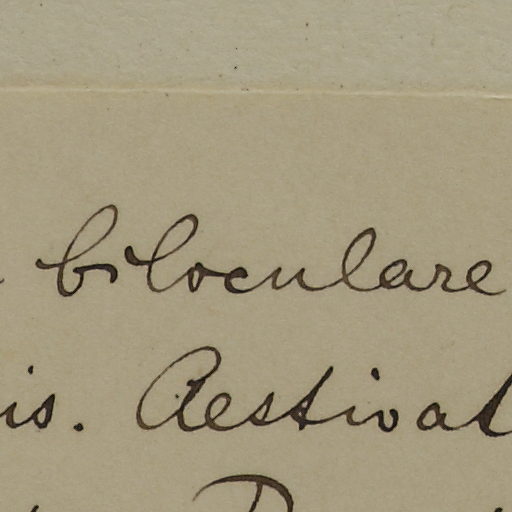 biloculare
is. Aestivat